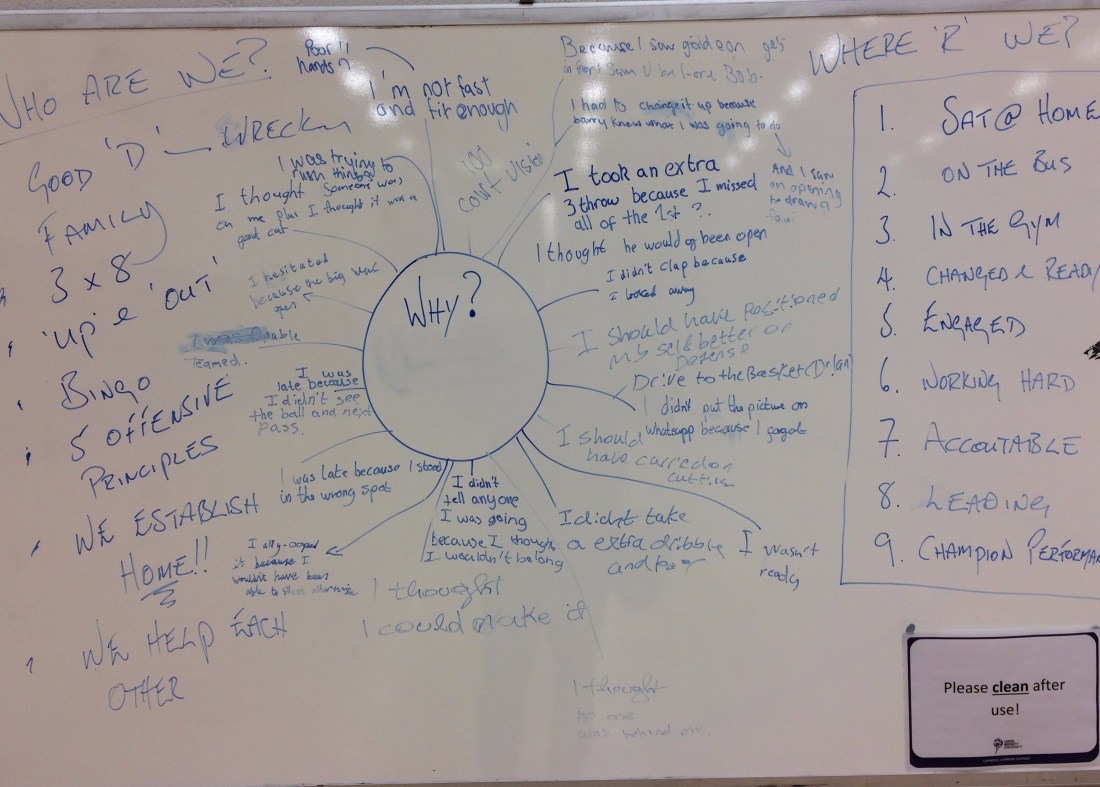 WHO ARE WE?
GOOD 'D' — WRECKN
FAMILY
3 x 8
'UP' & 'OUT'
BINGO
5 OFFENSIVE
PRINCIPLES
WE ESTABLISH
HOME!!
WE HELP EACH
OTHER
WHY?
Poor
hands?
I'm not fast
and fit enough
I was trying to
rush things
I thought someone was
on me plus I thought it was a
good cut
I hesitated
because the big was
open
I was Double
Teamed.
I was
late because
I didn't see
the ball and next
pass.
I was late because I stood
in the wrong spot
I ally-ooped
it because I
wouldn't have been
able to otherwise
I didn't
tell anyone
I was going
because I thought
I wouldn't be long
I thought
I could make it
I thought
no one
was behind me.
I didnt take
a extra dribble
and
I wasn't
ready
I should
have carried on
cutting
I didn't put the picture on
whatsapp because I
Drive to the Basket (Dylan)
I should have positioned
my self better on
Defense
I didn't clap because
I looked away
I thought he would of been open
I took an extra
3 throw because I missed
all of the 1st ?
And I saw
an opening
to draw a
foul
I had to change it up because
barry knew what I was going to do
Because I saw gideon get
in front
court vision
WHERE 'R' WE?
1. SAT @ HOME
2. ON THE BUS
3. IN THE GYM
4. CHANGED & READY
5. ENGAGED
6. WORKING HARD
7. ACCOUTABLE
8. LEADING
9. CHAMPION PERFORMA
Please clean after
use!